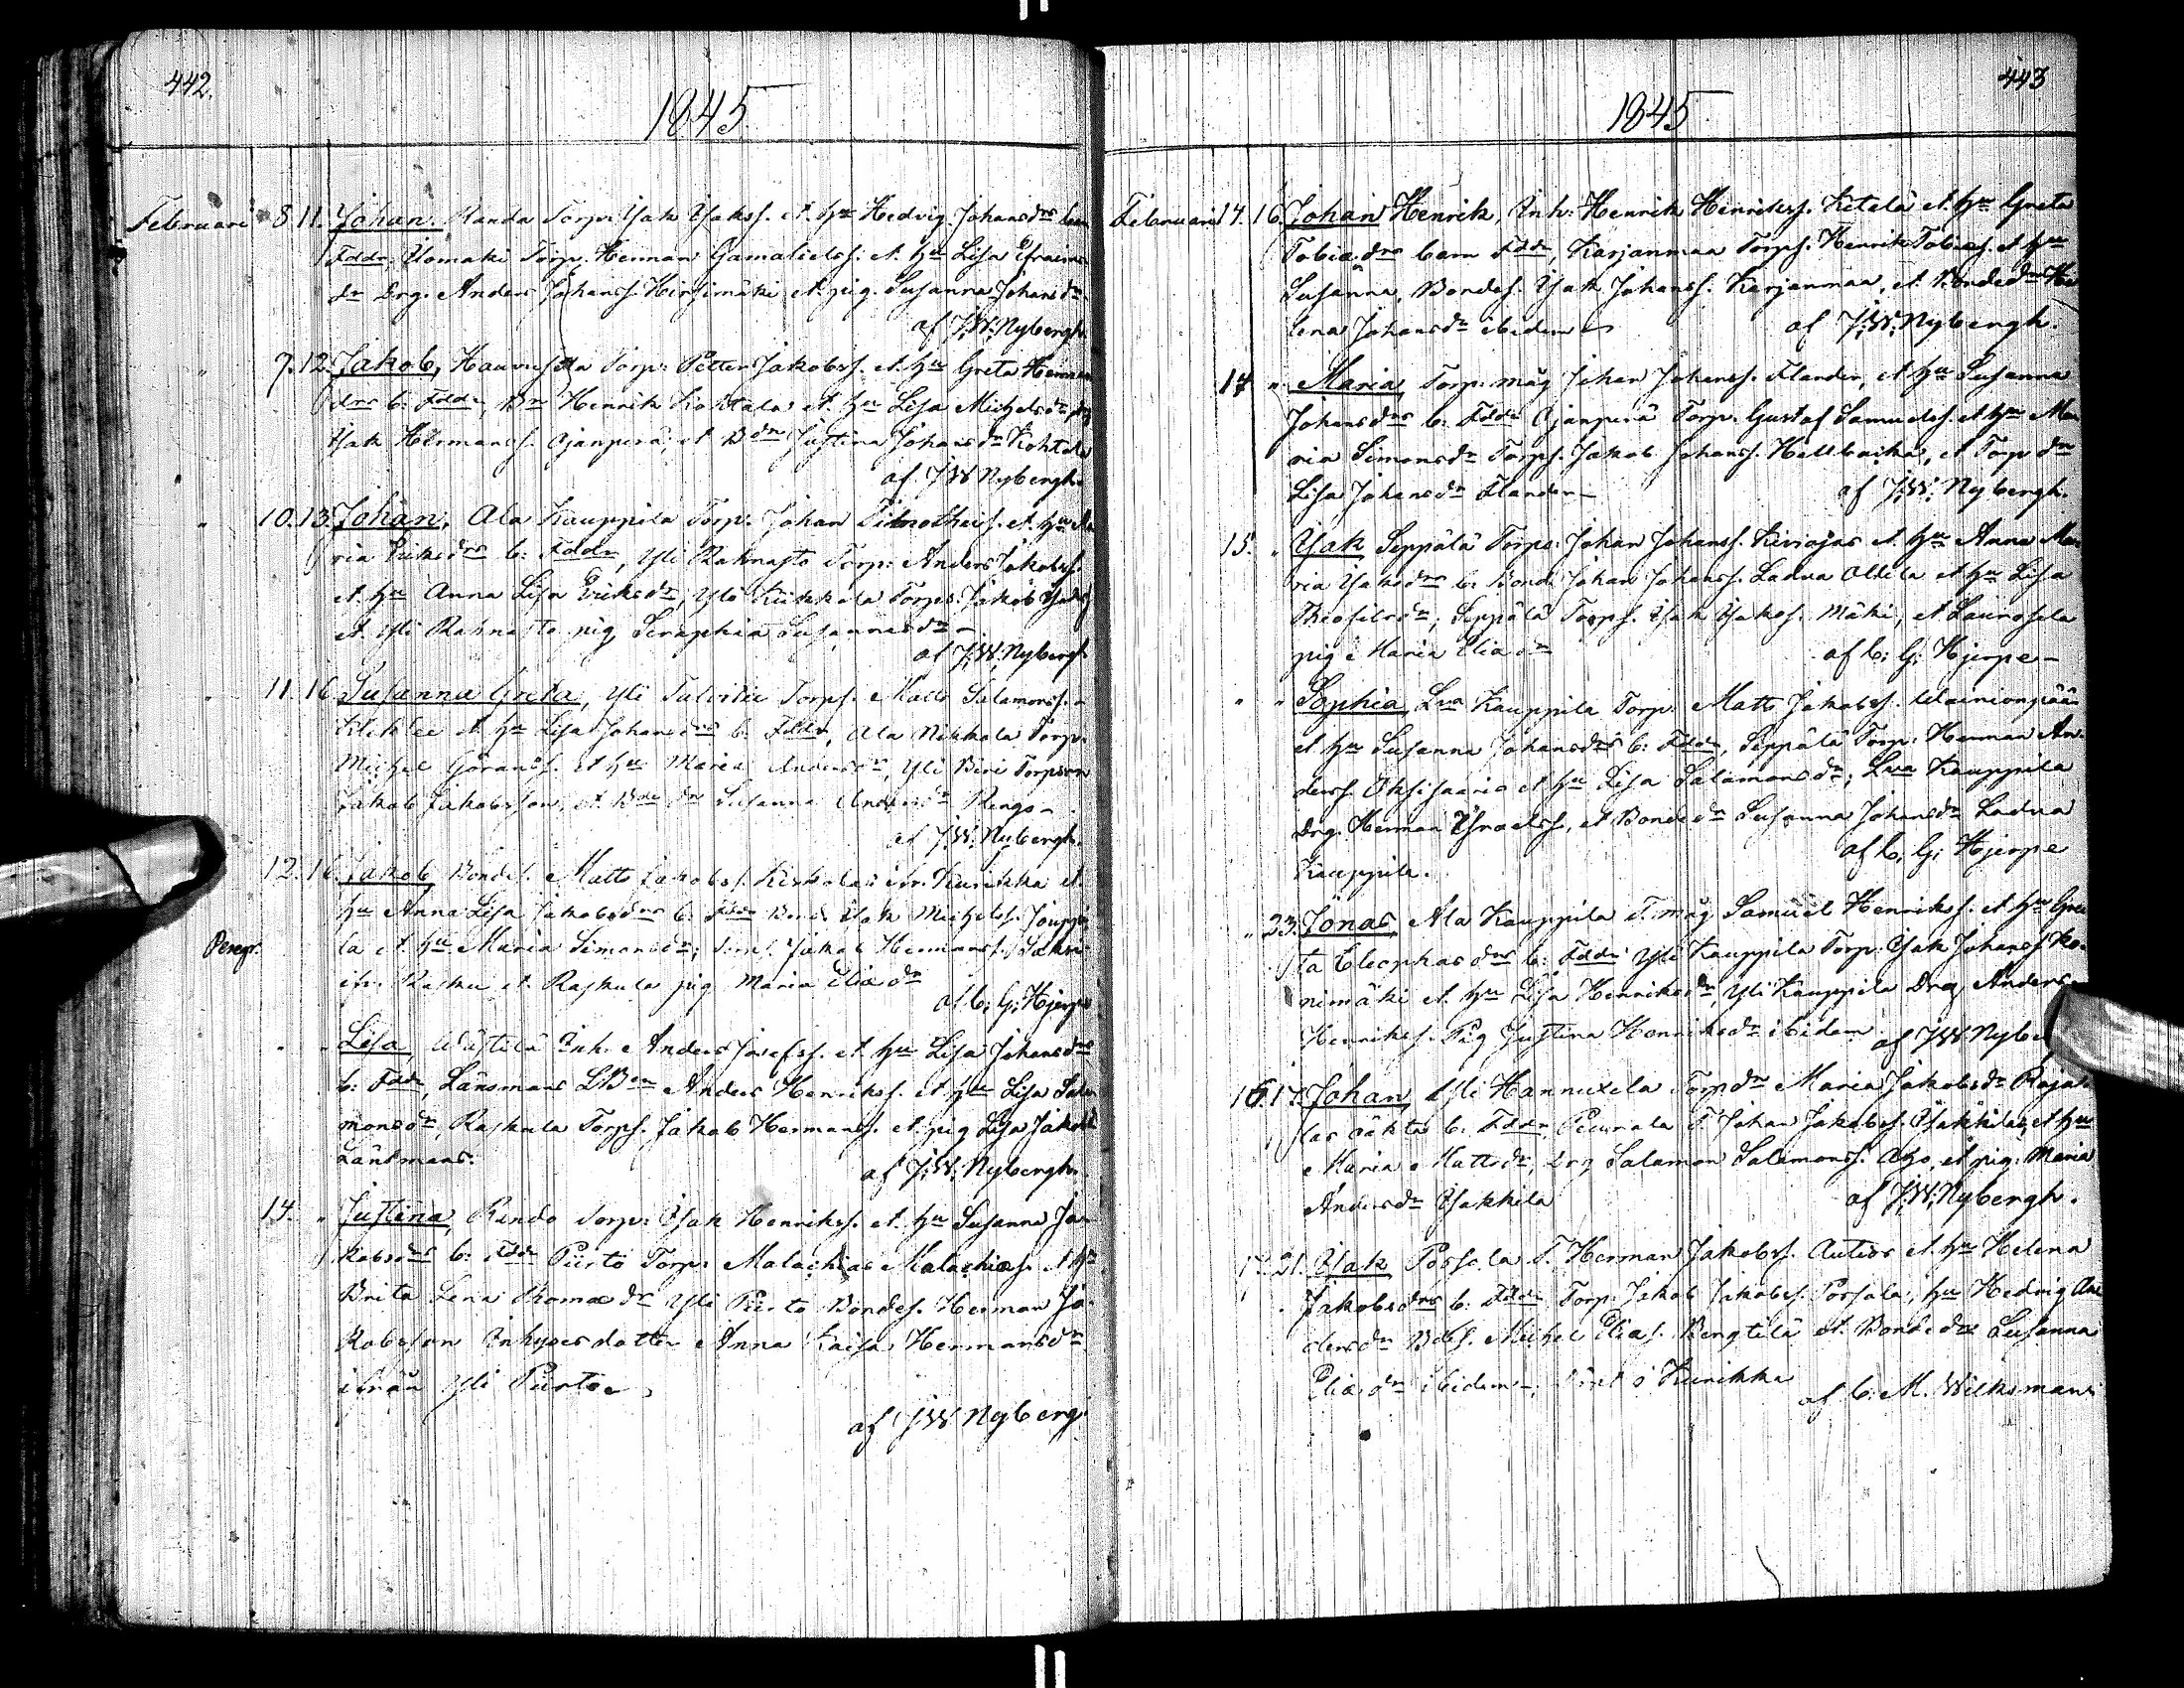 442.
1845
Februari 8. 11. Johan, Randa Torp. Isak Isakss. et. hu Hedvig Johansdrs barn
Fddr, Uomaki Torp. Herman Gamalielss. et. hu Lisa Efraims
dr Drg. Anders Johanss. Hirsimäki et pig. Susanna Johansdr
af J: W: Nybergh.
" 7. 12. Jakob, Torp. Petter Jakobss. et. hu Greta Herman
drs b: Fddr, Bn Henrik Kohtala et. hu Lisa Michelsdr
Isak Hermanss. Ojanperä, et Bdr Justina Johansdr Kohtala
af J W Nybergh.
" 10. 13. Johan, Ala Kauppila Torp. Johan Timotheiss. et. hu Ma
ria Eriksdrs b: Fddr, Yli Rahnasto Torp: Anders Jakobss.
et. hu Anna Lisa Eriksdr, Yli Kiikkala Torps. Jakob
et Yli Rahnasto pig Seraphia Susannasdr -
af J: W: Nybergh
" 11. 16. Susanna Greta, Yli Talvitie Torps. Matts Salamonss. -
et hu Lisa Johansdrs b: Fddr, Ala Nikkola Torp.
Michel Göranss. et hu Maria Andersdr, Yli Biri Torpson
Jakob Jakobsson, et Bdr Susanna Andersdr Rengo -
af J: W: Nybergh.
12. 16. Jakob, Bondes. Matts Jakobss. Keskola ifr. Kurikka et.
hu Anna Lisa Jakobsdrs b: Fddr Bond. Isak Michelss. Jouppi
Peregr. la et. hu Maria Simonsdr; Jakob Hermanss.
ifr. Rasku et. Raskula pig Maria Eliædr
af C: G: Hjerpe
" " Lisa, Wästilä Inh. Anders Josefss. et. hu Lisa Johansdrs
b: Fddr, Länsmans LBn Anders Henrikss. et hu Lisa Sala
monsdr, Raskula Torps. Jakob Hermanss. et pig Lisa Jakobsd
Länsmans.
af J: W: Nybergh.
14. " Justina, Rindo Torp: Isak Henrikss. et. hu Susanna Ja-
kobsdrs b: Fddr Piirto Torp: Malachias Malachiæs. et hu
Brita Lena Thomædr Yli Piirto Bondes. Herman Ja-
kobsson Inhysesdotter Anna Kaisa Hermansdr
ifrån Yli Piirto
af J W Nybergh
443
1845
Februari 14. 16. Johan Henrik, Inh: Henrik Henrikss. Ketala et. hu Greta
Tobiædrs barn Fddr, Karjanmaa Torps. Henrik Tobiæs. et hu
Susanna, Bondes. Isak Johanss. Karjanmaa, et Bondedr He
lena Johansdr ibidem
af J: W: Nybergh.
14 " Maria, Torp: måg Johan Johanss. Flander, et hu Susanna
Johansdrs b: Fddr Ojanperä Torp. Gustaf Samuelss. et hu Ma
ria Simonsdr Torps. Jakob Johanss. Hellbacka, et Torp dr
Lisa Johansdr Flander -
af J: W: Nybergh.
15. " Isak Seppälä Torps: Johan Johanss. Kiviojas et hu Anna Ma
ria Isaksdrs b: Bond. Johan Johanss. Ladva Ollila et hu Lisa
Theofilsdr; Seppälä Torps. Isak Isakss. Mäki, et Laurosela
pig: Maria Eliædr
af C: G: Hjerpe -
" " Sophia, Lva Kauppila Torp. Matts Jakobss.
et hu Susanna Johansdrs b: Fddr, Seppälä Torp: Herman An-
derss. Oksisaario et hu Lisa Salamonsdr; Lva Kauppila
Drg. Herman Israelss, et Bondedr Susanna Johansdr Ladva
Kauppila.
af C: G: Hjerpe
" 23. Jonas, Ala Kauppila T. måg Samuel Henrikss. et hu Gre
ta Cleophasdrs b: Fddr Yli Kauppila Torp. Isak Johanss Ko-
nimäki et hu Lisa Henriksdr, Yli Kauppila Drg Anders
Henrikss. Pig Justina Henriksdr ibidem
af J W Nyber
16. 17. Johan, Yli Hannuxela Torpdr Maria Jakobsdr Rajal
las oäkta b: Fddr, Piurala T. Johan Jakobss. Isakkila et hu
Maria Mattsdr, Drg Salamon Salamonss. Aho, et pig: Maria
Andersdr Isakkila
af J: W: Nybergh.
17. 21. Isak Porsola T. Herman Jakobss. Autios et hu Helena
Jakobsdrs b: Fddr Torp: Jakob Jakobss. Porsola, hu Hedvig An
dersdr Bds. Michel Eliæs. Rengtilä et. Bondedr Susanna
Eliædr ibidem - i Kurikka
af C. M. Wilksman